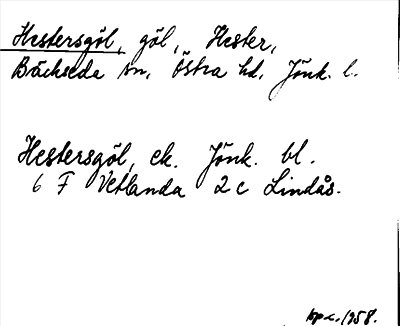 Hestersgöl, göl, Hester,
Bäckseda sn, Östra hd, Jönk. l.
Hestersgöl, ek. Jönk. bl.
6 F Vetlanda 2 c Lindås.
1958.